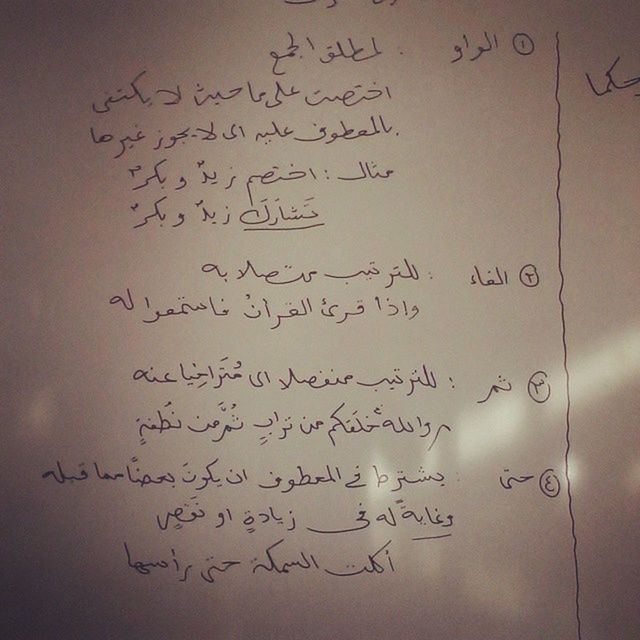 حكما
① الواو : لمطلق الجمع
اختصت على ما حيث لا يكتفى
بالمعطوف عليه اى لا يجوز غيرها
مثال : اختصم زيدٌ و بكرٌ
تَشارَكَ زيدٌ و بكرٌ
② الفاء : للترتيب متصلا به
واذا قرئ القرآنُ فاستمعوا له
③ ثم : للترتيب منفصلا اى مُتَراخِيا عنه
والله خَلَقكم من ترابٍ ثُمَّ من نُطفةٍ
④ حتى : يشترط في المعطوف ان يكونَ بعضًا مما قبله
وغايةً له فى زيادةٍ او نَقصٍ
أكلت السمكة حتى رأسها